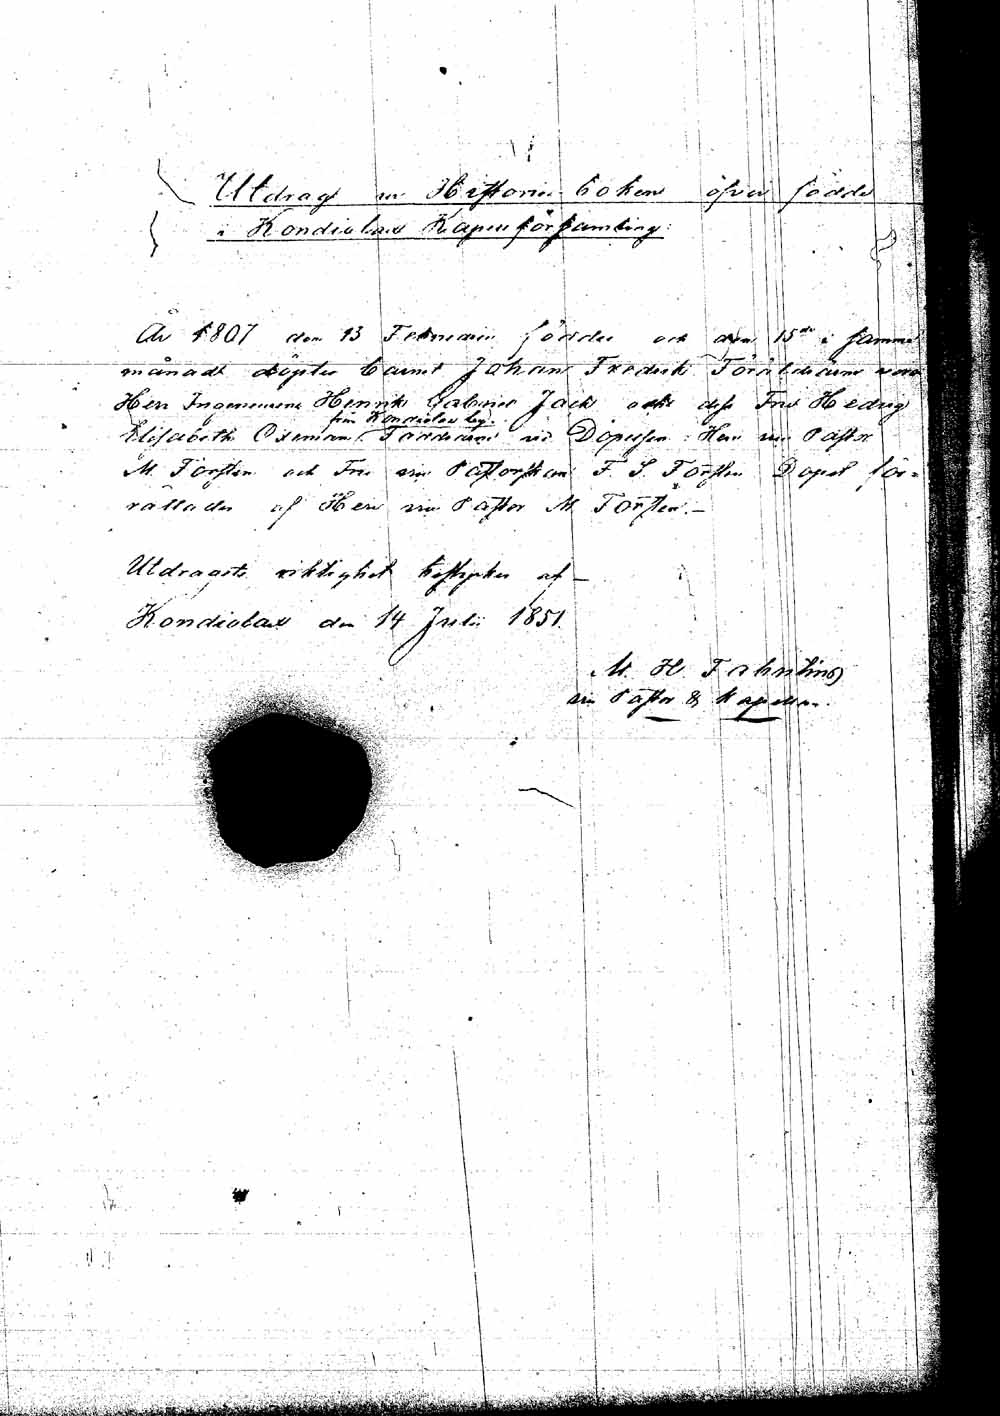 Utdrag ur Historie-boken öfver födde
i Kondiolax Kapellförsamling:
År 1807 den 13 Februarii föddes och den 15de i samma
månad döptes barnet Johan Fredrik Föräldrarne voro
Herr Ingenieuren Henrik Gabriel Jack och dess Fru Hedvig
från Kondiolax by.
Elisabeth Öseman. Faddrarne vid Döpelsen: Herr vice Pastor
M. Forsten och Fru vice Pastorskan F. S. Forstén Dopet för=
rättades af Herr vice Pastor M. Forstén.—
Utdragets riktighet bestyrker af—
Kondiolax den 14 Julii 1851.
M. H.
vice Pastor & Kapellan.